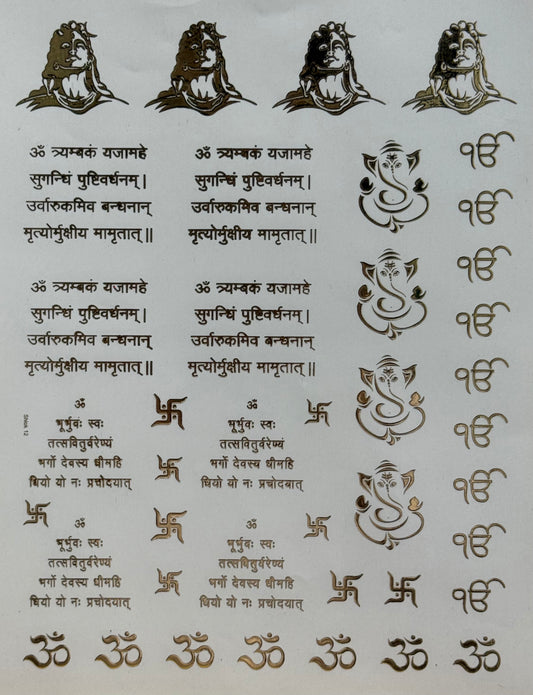 ॐ त्र्यम्बकं यजामहे
सुगन्धिं पुष्टिवर्धनम् |
उर्वारुकमिव बन्धनान्
मृत्योर्मुक्षीय मामृतात् ||
ॐ त्र्यम्बकं यजामहे
सुगन्धिं पुष्टिवर्धनम् |
उर्वारुकमिव बन्धनान्
मृत्योर्मुक्षीय मामृतात् ||
ੴ
ੴ
ੴ
ੴ
ॐ त्र्यम्बकं यजामहे
सुगन्धिं पुष्टिवर्धनम् |
उर्वारुकमिव बन्धनान्
मृत्योर्मुक्षीय मामृतात् ||
ॐ त्र्यम्बकं यजामहे
सुगन्धिं पुष्टिवर्धनम् |
उर्वारुकमिव बन्धनान्
मृत्योर्मुक्षीय मामृतात् ||
ੴ
ੴ
ੴ
ੴ
ੴ
Shiva 12
ॐ
भूर्भुवः स्वः
तत्सवितुर्वरेण्यं
भर्गो देवस्य धीमहि
धियो यो नः प्रचोदयात्
ॐ
भूर्भुवः स्वः
तत्सवितुर्वरेण्यं
भर्गो देवस्य धीमहि
धियो यो नः प्रचोदयात्
ॐ
भूर्भुवः स्वः
तत्सवितुर्वरेण्यं
भर्गो देवस्य धीमहि
धियो यो नः प्रचोदयात्
ॐ
भूर्भुवः स्वः
तत्सवितुर्वरेण्यं
भर्गो देवस्य धीमहि
धियो यो नः प्रचोदयात्
ॐ ॐ ॐ ॐ ॐ ॐ ॐ